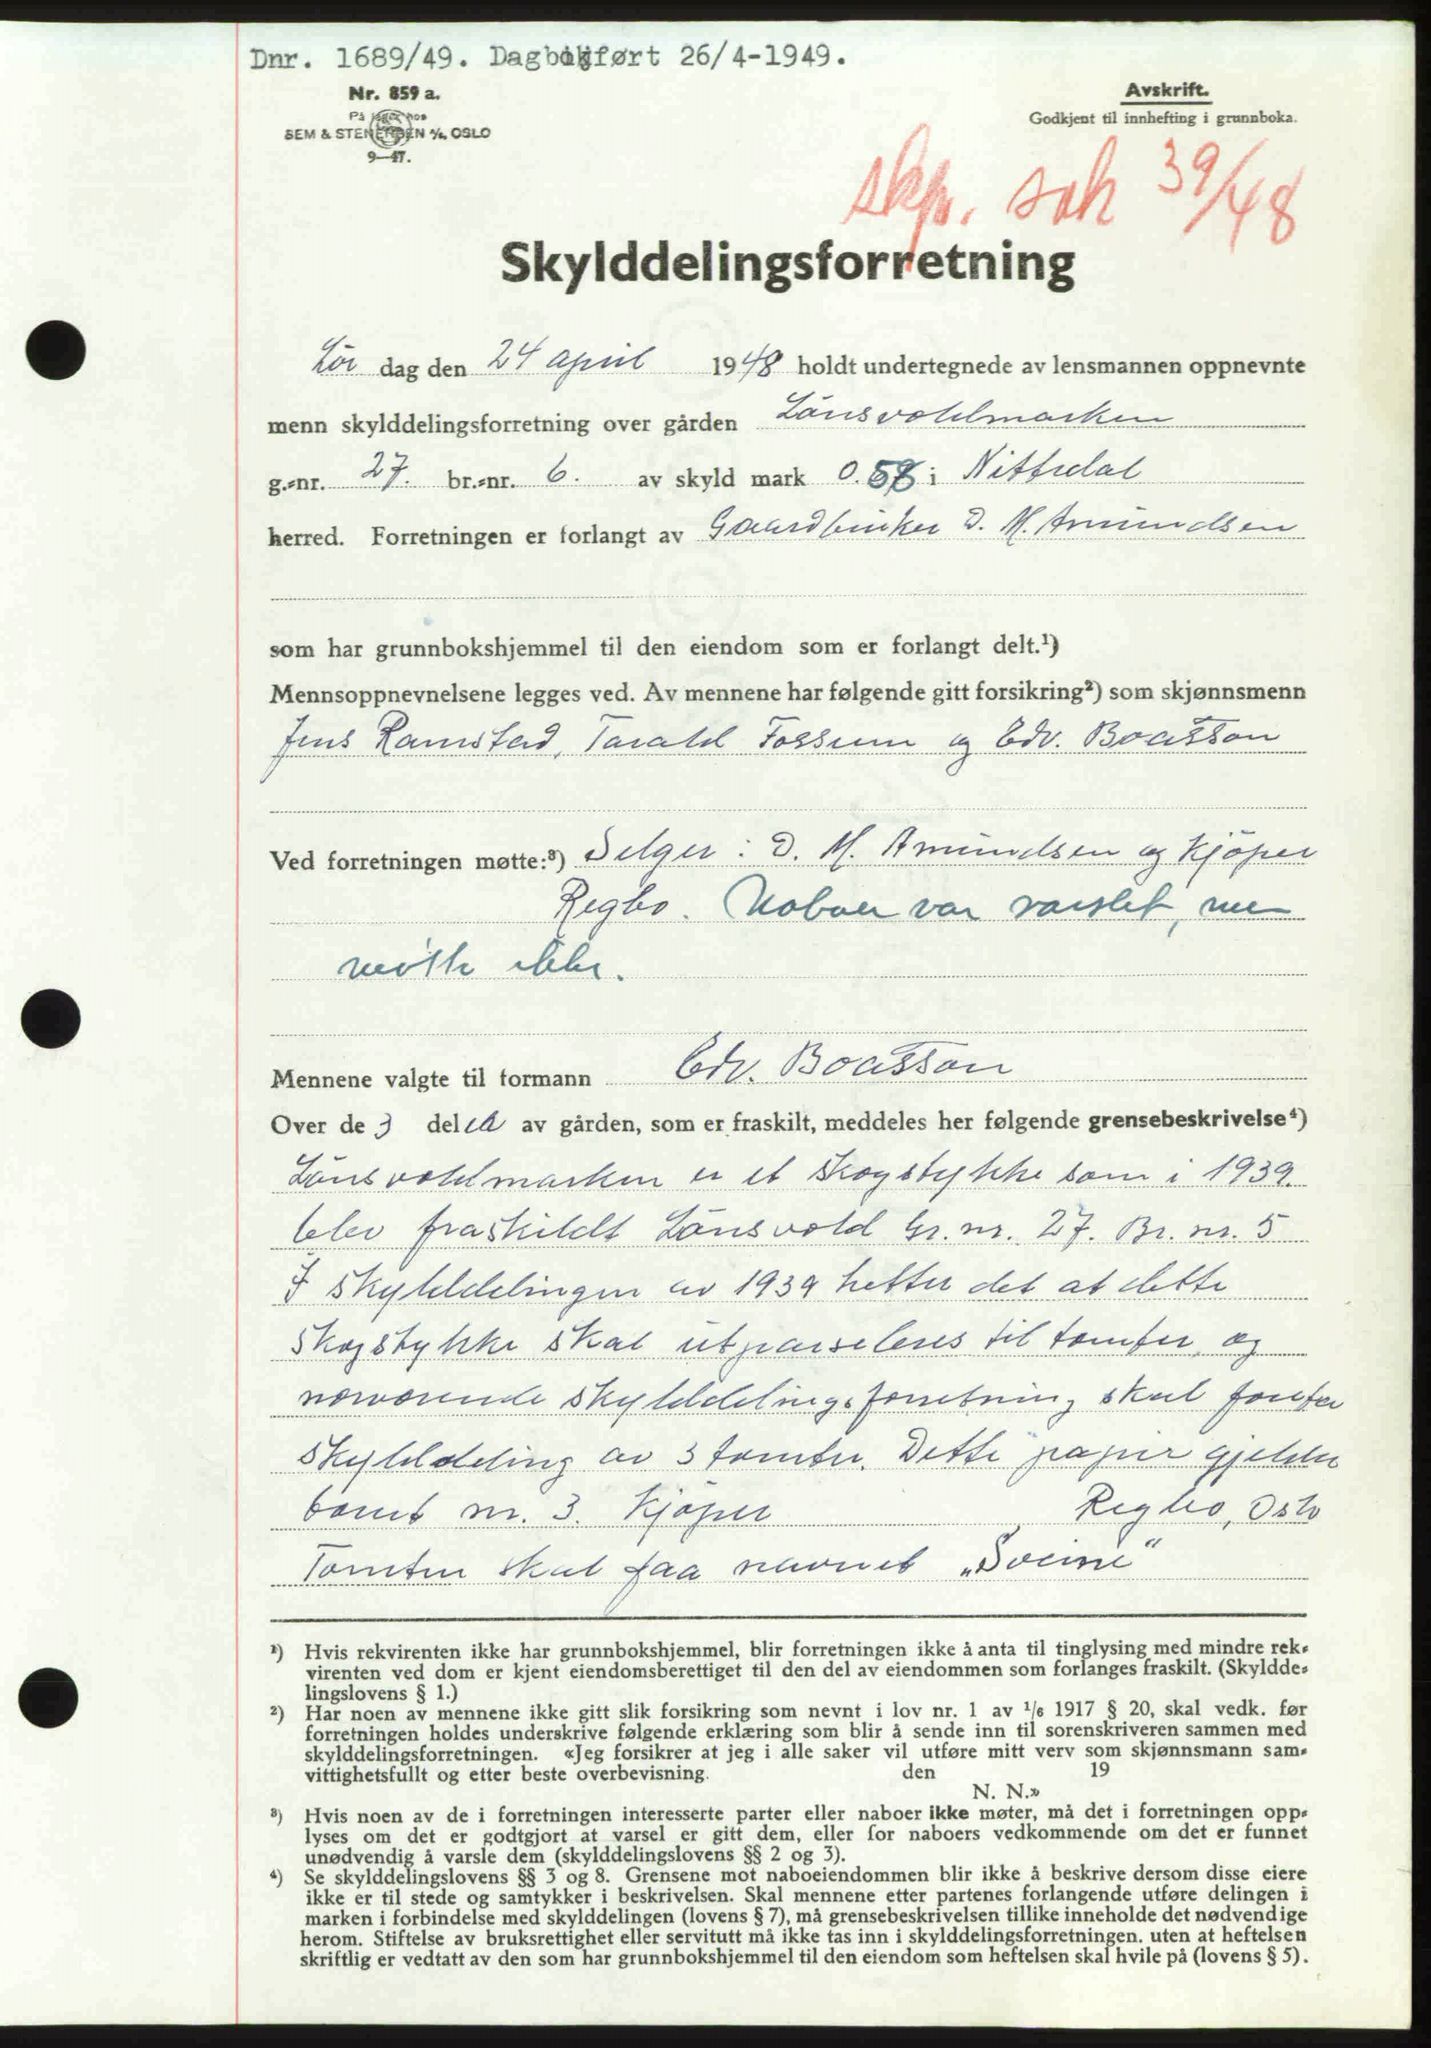 Dnr. 1689/49. Dagbokført 26/4-1949.
Nr. 859 a.
På lager hos
SEM & STENERSEN A/S, OSLO
9—47.
Avskrift.
Godkjent til innhefting i grunnboka.
skp. sak 39/48
Skylddelingsforretning
Lör dag den 24 april 1948 holdt undertegnede av lensmannen oppnevnte
menn skylddelingsforretning over gården Lönsvoldmarken
g.-nr. 27. br.-nr. 6. av skyld mark 0.58 i Nittedal
herred. Forretningen er forlangt av Gaardbruker D. M. Amundsen
som har grunnbokshjemmel til den eiendom som er forlangt delt.¹)
Mennsoppnevnelsene legges ved. Av mennene har følgende gitt forsikring²) som skjønnsmenn
Jens Ramstad, Tarald Fossum og Edv. Boasson
Ved forretningen møtte:³) Selger: D. M. Amundsen og Kjöper
Regbo. Naboer var varslet, men
møtte ikke.
Mennene valgte til formann Edv. Boasson
Over de 3 delen av gården, som er fraskilt, meddeles her følgende grensebeskrivelse⁴)
Lönsvoldmarken er et skogstykke som i 1939.
blev fraskildt Lönsvold Gr. nr. 27. Br. nr. 5
I skylddelingen av 1939 hetter det at dette
skogstykke skal utparseleres til tomter, og
nærværende skylddelingsforretning skal foreta
skylddeling av 3 tomter. Dette papir gjelder
tomt nr. 3. Kjöper Regbo, Oslo
Tomten skal faa navnet „Sveine“
¹) Hvis rekvirenten ikke har grunnbokshjemmel, blir forretningen ikke å anta til tinglysing med mindre rek-
virenten ved dom er kjent eiendomsberettiget til den del av eiendommen som forlanges fraskilt. (Skyldde-
lingslovens § 1.)
²) Har noen av mennene ikke gitt slik forsikring som nevnt i lov nr. 1 av 1/6 1917 § 20, skal vedk. før
forretningen holdes underskrive følgende erklæring som blir å sende inn til sorenskriveren sammen med
skylddelingsforretningen. «Jeg forsikrer at jeg i alle saker vil utføre mitt verv som skjønnsmann sam-
vittighetsfullt og etter beste overbevisning. den 19
N. N.»
³) Hvis noen av de i forretningen interesserte parter eller naboer ikke møter, må det i forretningen opp-
lyses om det er godtgjort at varsel er gitt dem, eller for naboers vedkommende om det er funnet
unødvendig å varsle dem (skylddelingslovens §§ 2 og 3).
⁴) Se skylddelingslovens §§ 3 og 8. Grensene mot naboeiendommen blir ikke å beskrive dersom disse eiere
ikke er til stede og samtykker i beskrivelsen. Skal mennene etter partenes forlangende utføre delingen i
marken i forbindelse med skylddelingen (lovens § 7), må grensebeskrivelsen tillike inneholde det nødvendige
herom. Stiftelse av bruksrettighet eller servitutt må ikke tas inn i skylddelingsforretningen. uten at heftelsen
skriftlig er vedtatt av den som har grunnbokshjemmel til den eiendom som heftelsen skal hvile på (lovens § 5).